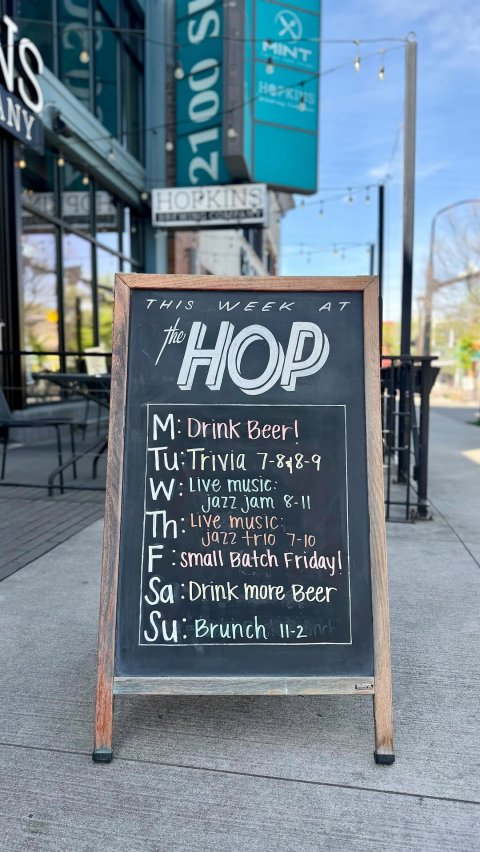 NS
ANY
2100 S
MINT
HOPKINS
HOPKINS
BREWING COMPANY
THIS WEEK AT
the HOP
M: Drink Beer!
Tu: Trivia 7-8 & 8-9
W: Live music:
jazz jam 8-11
Th: Live music:
jazz trio 7-10
F: Small Batch Friday!
Sa: Drink more Beer
Su: Brunch 11-2